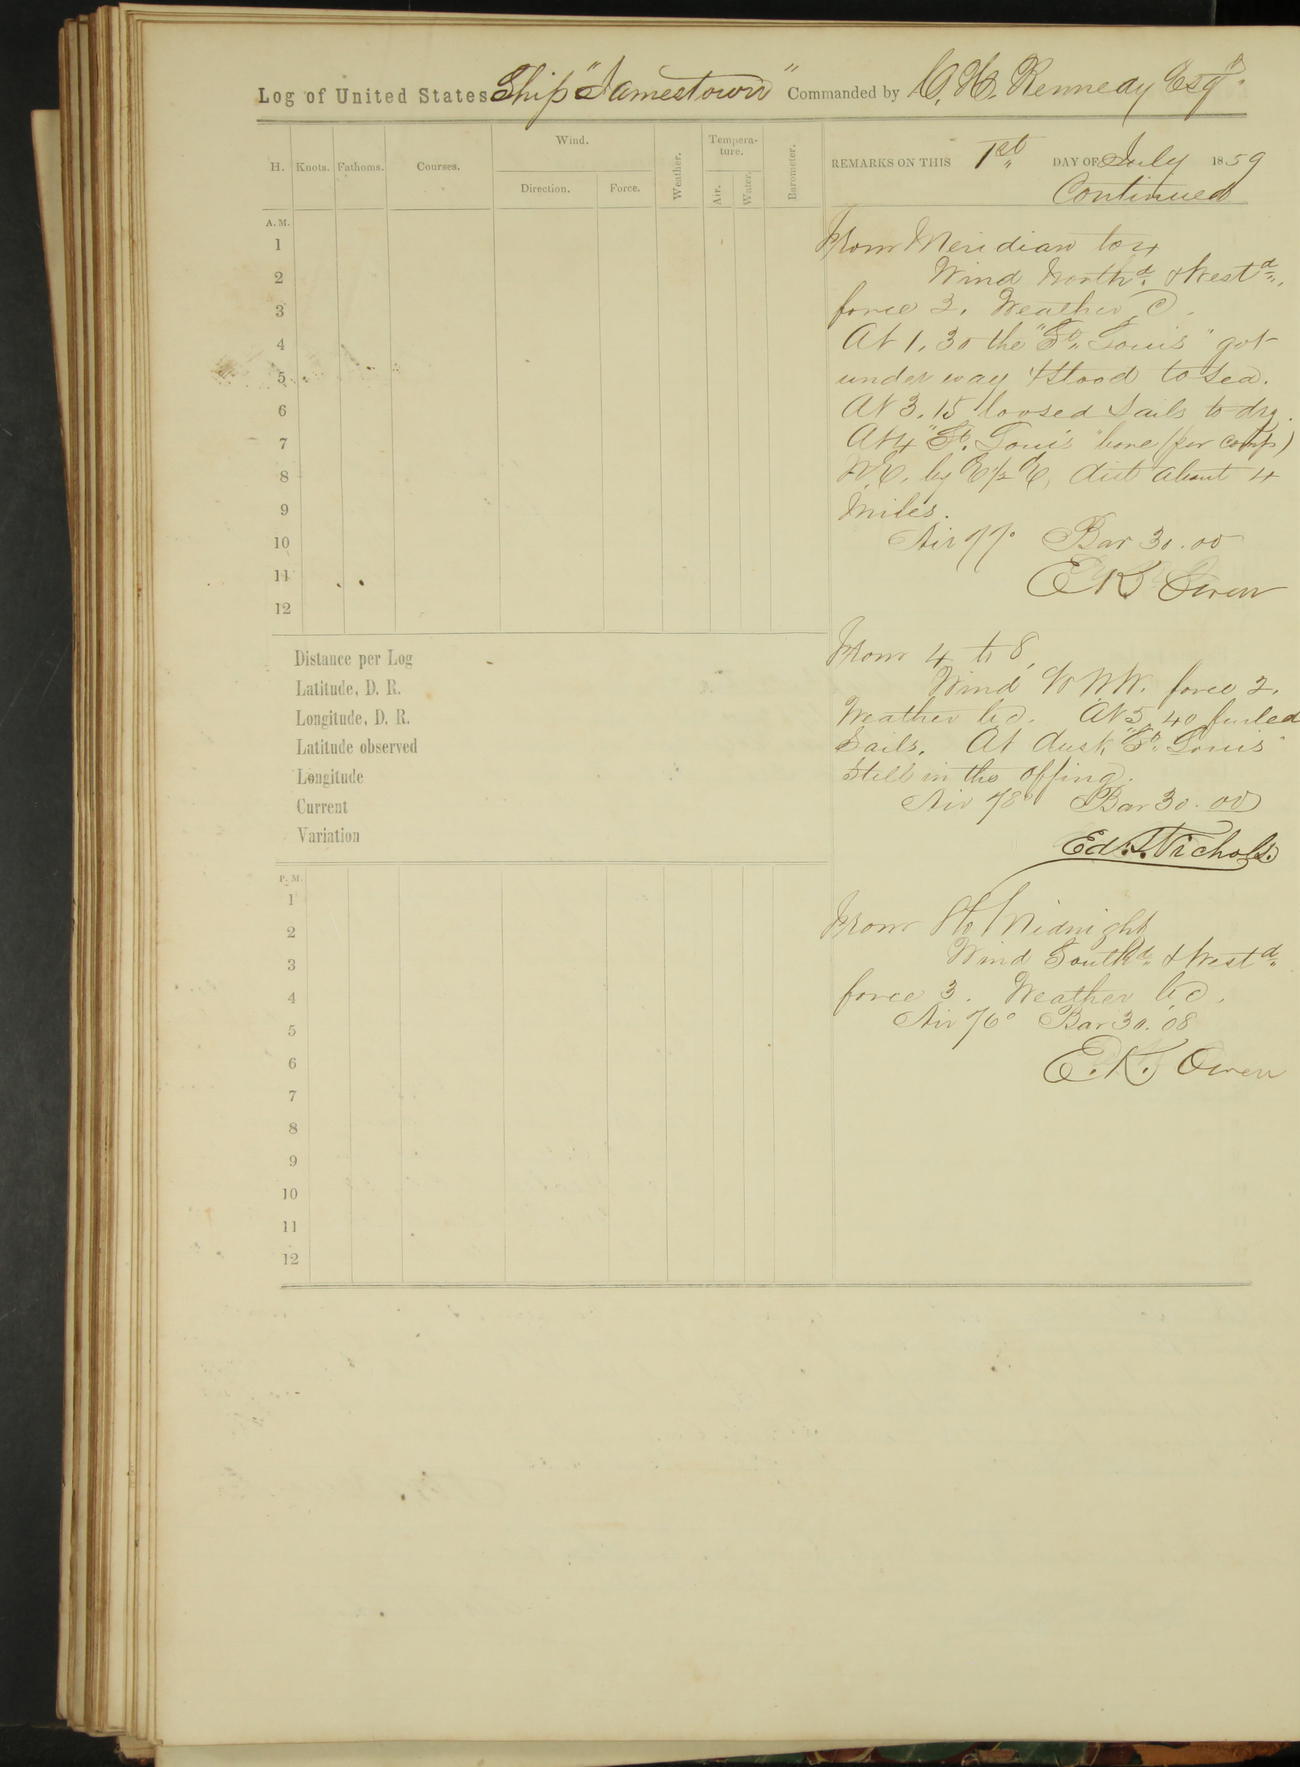 Log of United States Ship "Jamestown" Commanded by C. H. Kennedy Esqr.
H. Knots. Fathoms. Courses. Wind. Direction. Force. Weather. Tempera-ture. Air. Water. Barometer.
REMARKS ON THIS 1st DAY OF July 1859
Continued
A.M.
1
2
3
4
5
6
7
8
9
10
11
12
From Meridian to 4
Wind Northd. & Westd.
force 2. Weather c.
At 1.30 the "St. Louis" got
under way & stood to sea.
At 3.15 loosed sails to dry.
At 4 "St. Louis" bore (per comp)
N.E. by E 1/2 E, dist about 4
miles.
Air 77° Bar 30.00
E K Owen
Distance per Log
Latitude, D. R.
Longitude, D. R.
Latitude observed
Longitude
Current
Variation
From 4 to 8,
Wind WNW. force 2.
Weather b.c. At 5.40 furled
Sails. At dusk "St. Louis"
still in the offing.
Air 78° Bar 30.00
Ed. T. Nichols.
P.M.
1
2
3
4
5
6
7
8
9
10
11
12
From 8 to Midnight
Wind Southd. & Westd.
force 3. Weather b.c.
Air 76° Bar 30.08
E. K. Owen